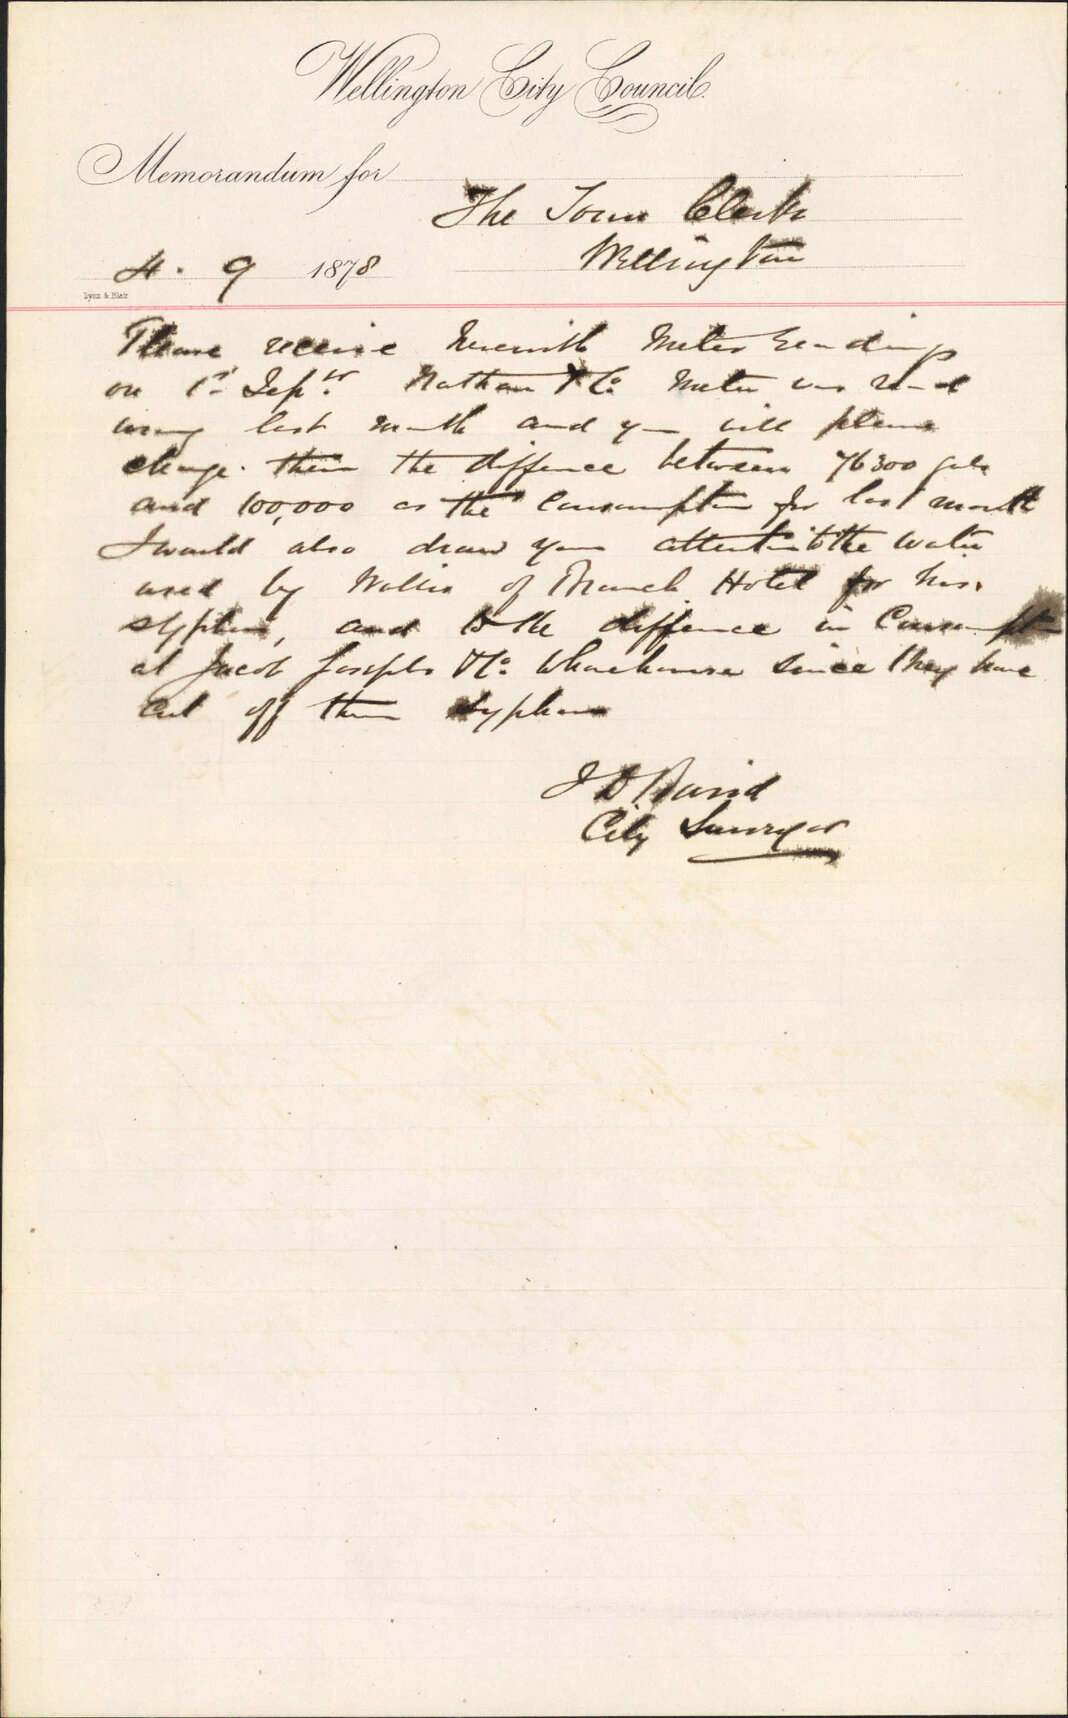 Wellington City Council.
Memorandum for
The Town Clerk
Wellington
4. 9 1878
Lyon & Blair
Please receive herewith Meter Readings
on 1st Sepr. Nathan & Co Meter was read
wrong last month and you will please
charge them the differnce between 76300 gals
and 100,000 as the Consumption for last month
I would also draw your attention to the water
used by Wallis of Branch Hotel for his
syphon, and to the differnce in Consumpt
at Jacob Josephs & Co. Wharehouse since they have
cut off their syphon
J D Baird
City Surveyor